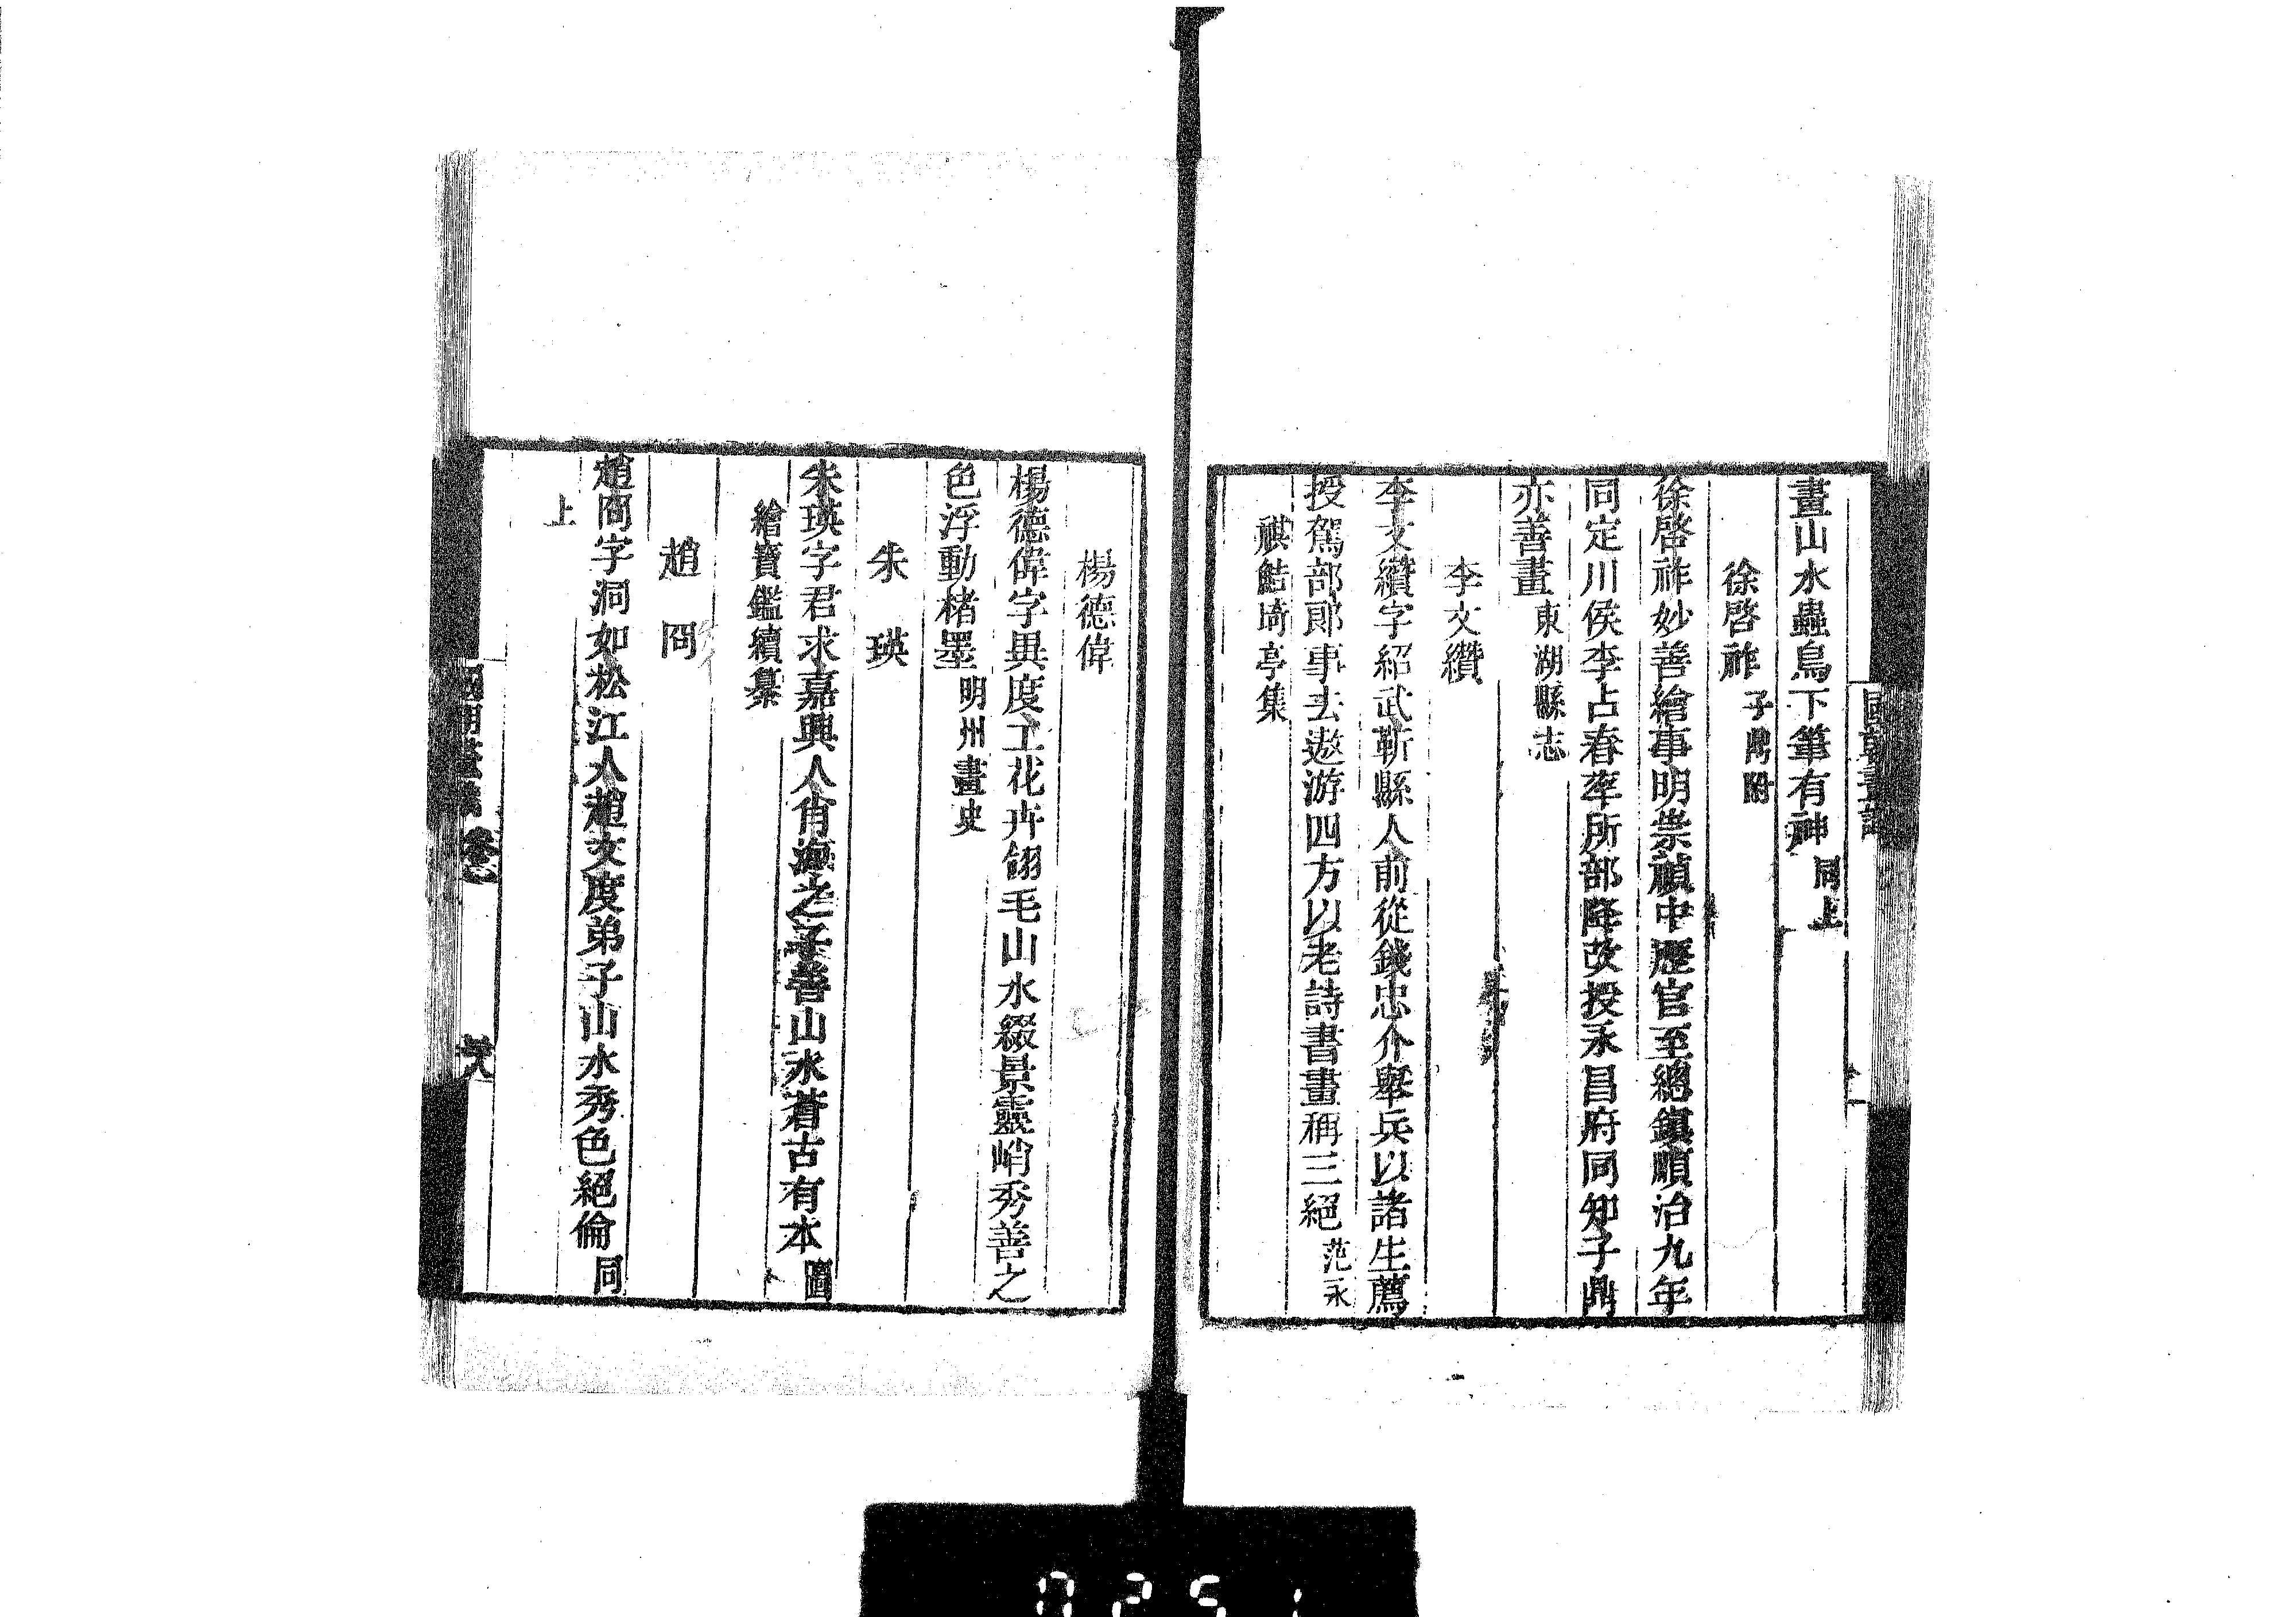 畫山水蟲鳥下筆有神同上
徐啓祚子鼎附
徐啓祚妙善繪事明崇禎中歷官至總鎮順治九年
同定川侯李占春率所部降改授永昌府同知子鼎
亦善畫東湖縣志
李文纘
李文纘字紹武鄞縣人前從錢忠介舉兵以諸生薦
授駕部郎事去遨游四方以老詩書畫稱三絕范永
祺鮚埼亭集
楊德偉
楊德偉字異度工花卉翎毛山水綴景靈峭秀善之
色浮動楮墨明州畫史
朱瑛
朱瑛字君求嘉興人肖海之子善山水蒼古有本圖
繪寶鑑續纂
趙冏
趙冏字洞如松江人趙文度弟子山水秀色絕倫同
上
0251